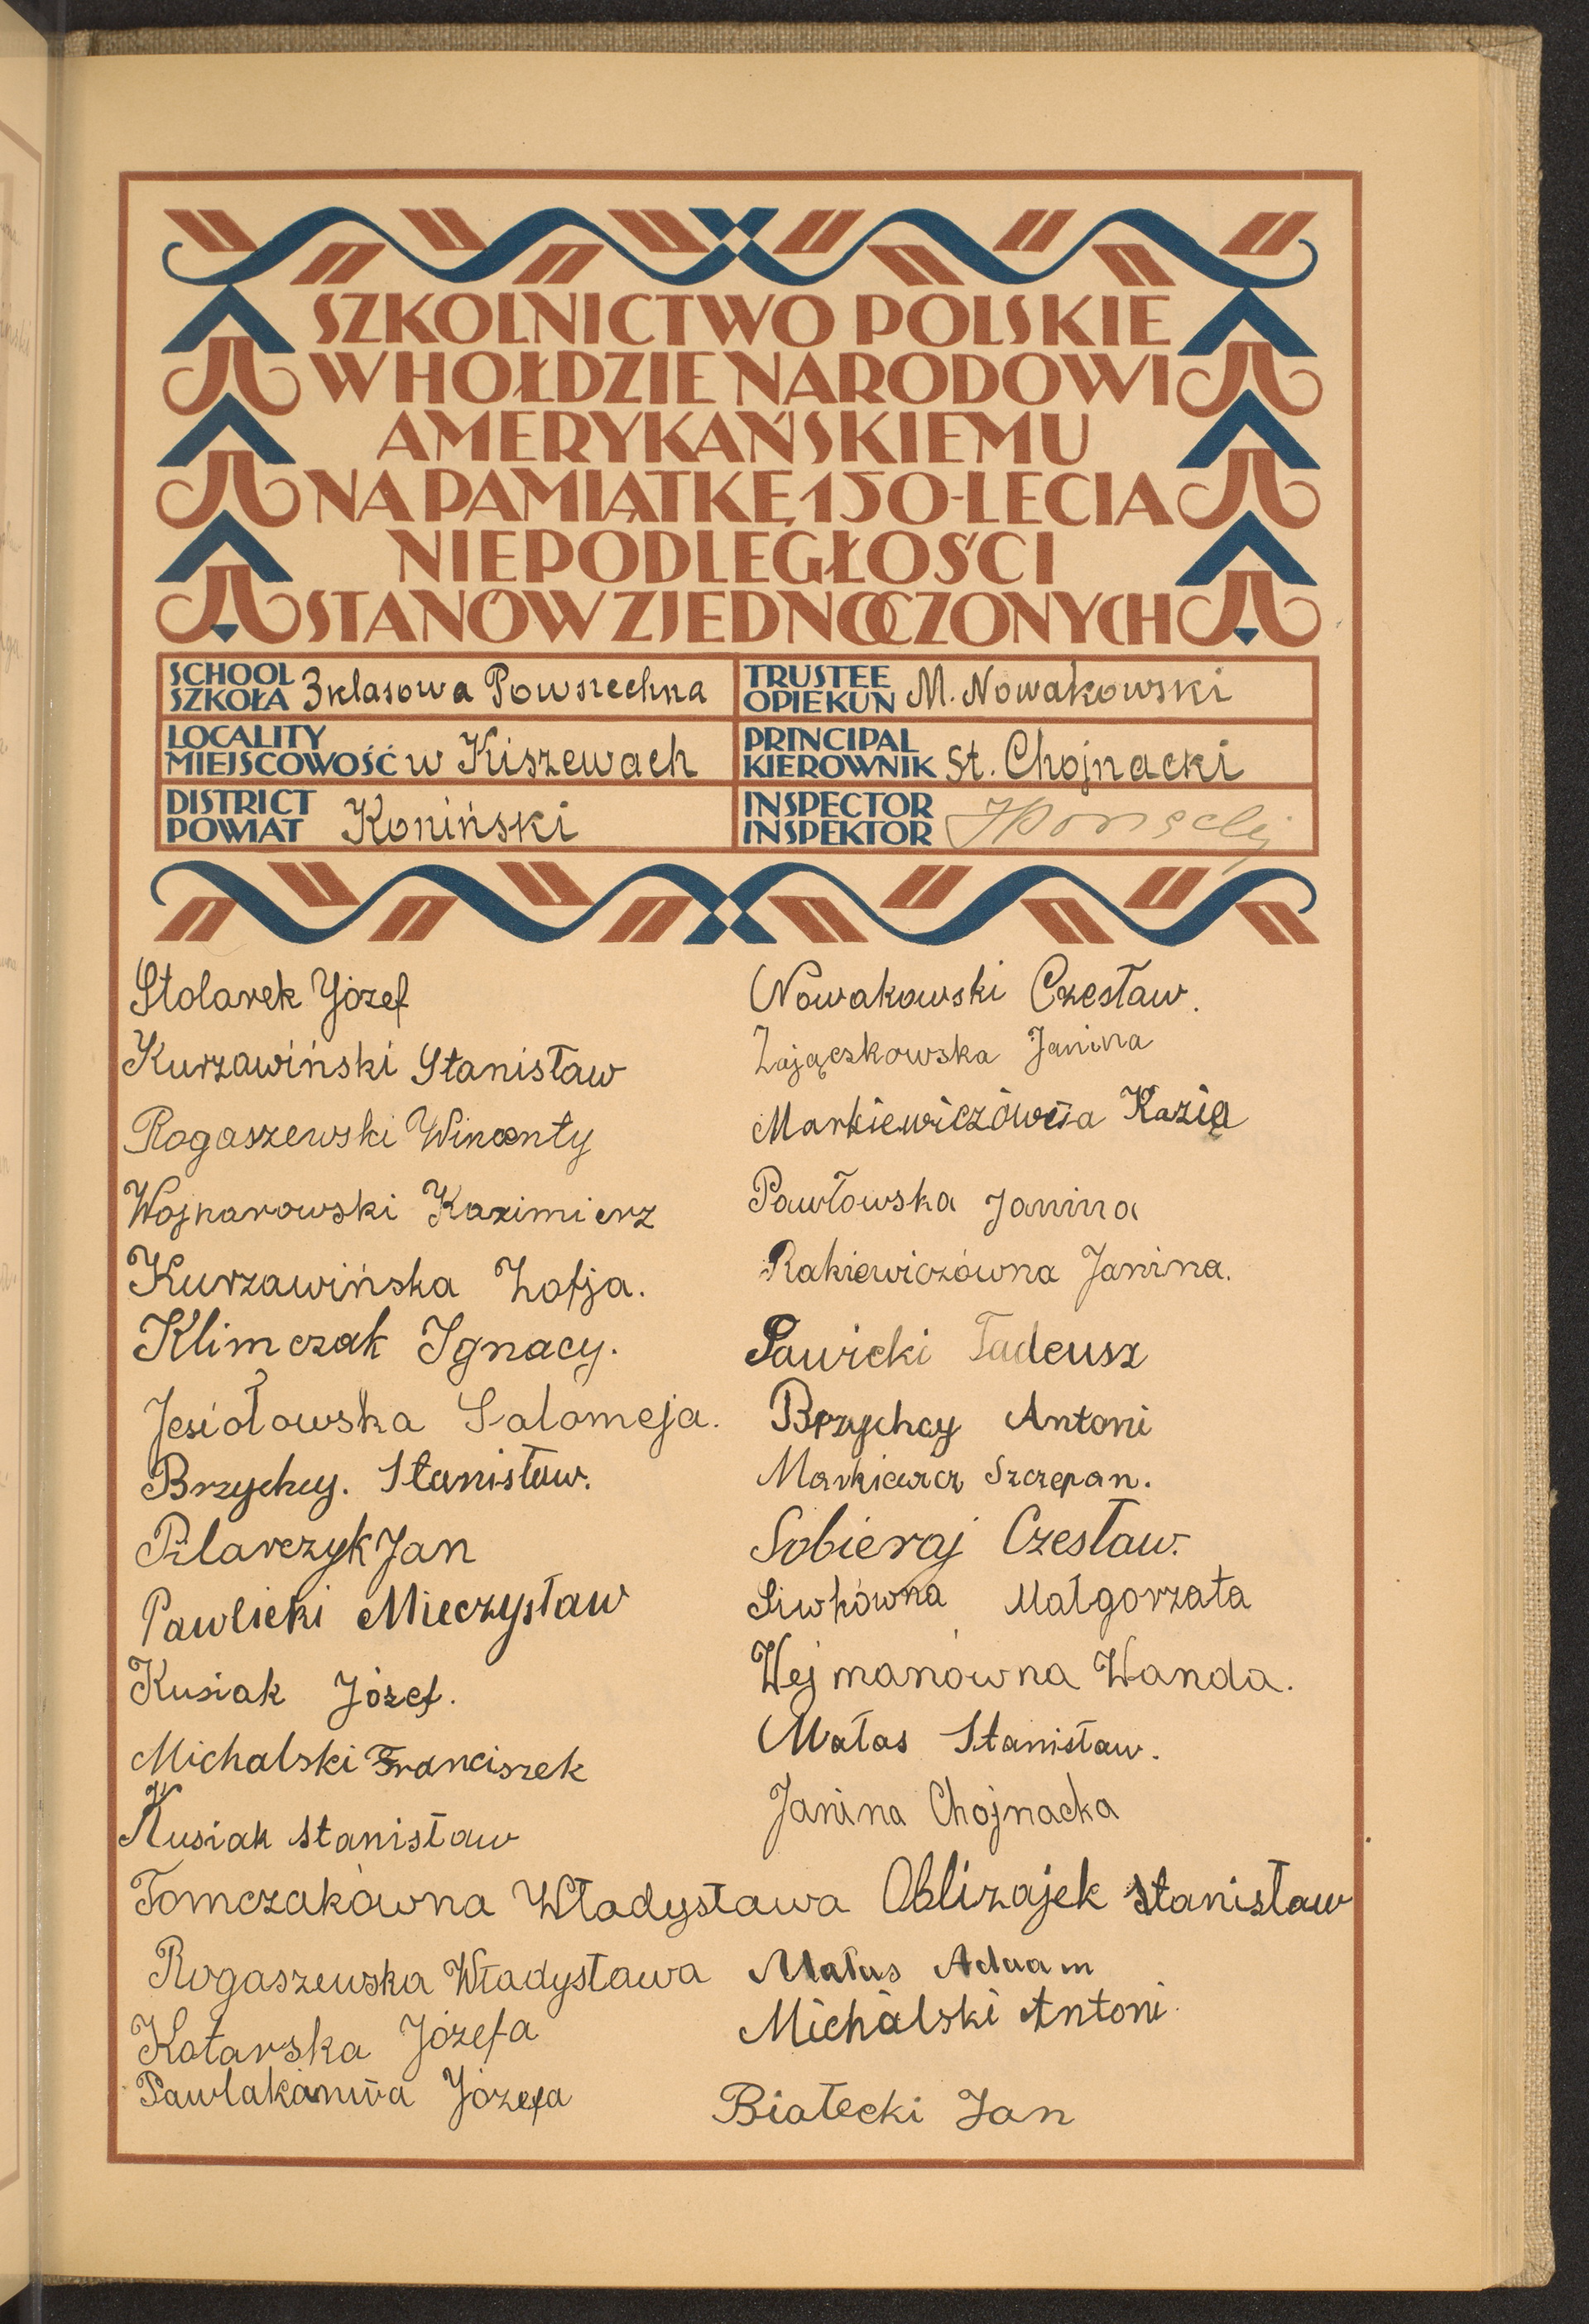 SZKOLNICTWO POLSKIE
W HOŁDZIE NARODOWI
AMERYKAŃSKIEMU
NA PAMIĄTKĘ 150-LECIA
NIEPODLEGŁOŚCI
STANÓW ZJEDNOCZONYCH
SCHOOL
SZKOŁA 3 klasowa Powszechna
TRUSTEE
OPIEKUN M. Nowakowski
LOCALITY
MIEJSCOWOŚĆ w Kiszewach
PRINCIPAL
KIEROWNIK St. Chojnacki
DISTRICT
POWIAT Koniński
INSPECTOR
INSPEKTOR
Stolarek Józef
Kurzawiński Stanisław
Rogaszewski Wincenty
Wojnarowski Kazimierz
Kurzawińska Zofja.
Klimczak Ignacy.
Jesiołowska Salomeja.
Brzychcy. Stanisław.
Pilarczyk Jan
Pawlicki Mieczysław
Kusiak Józef.
Michalski Franciszek
Kusiak Stanisław
Tomczakówna Władysława
Rogaszewska Władysława
Kotarska Józefa
Józefa
Nowakowski Czesław.
Zajączkowska Janina
Markiewiczówna Kazia
Pawłowska Janina
Rakiewiczówna Janina.
Pawicki Tadeusz
Brzychcy Antoni
Markiewicz Szczepan.
Sobieraj Czesław.
Siwkówna Małgorzata
Wejmanówna Wanda.
Matas Stanisław.
Janina Chojnacka
Oblizajek Stanisław
Matas Adaam
Michalski Antoni
Białecki Jan